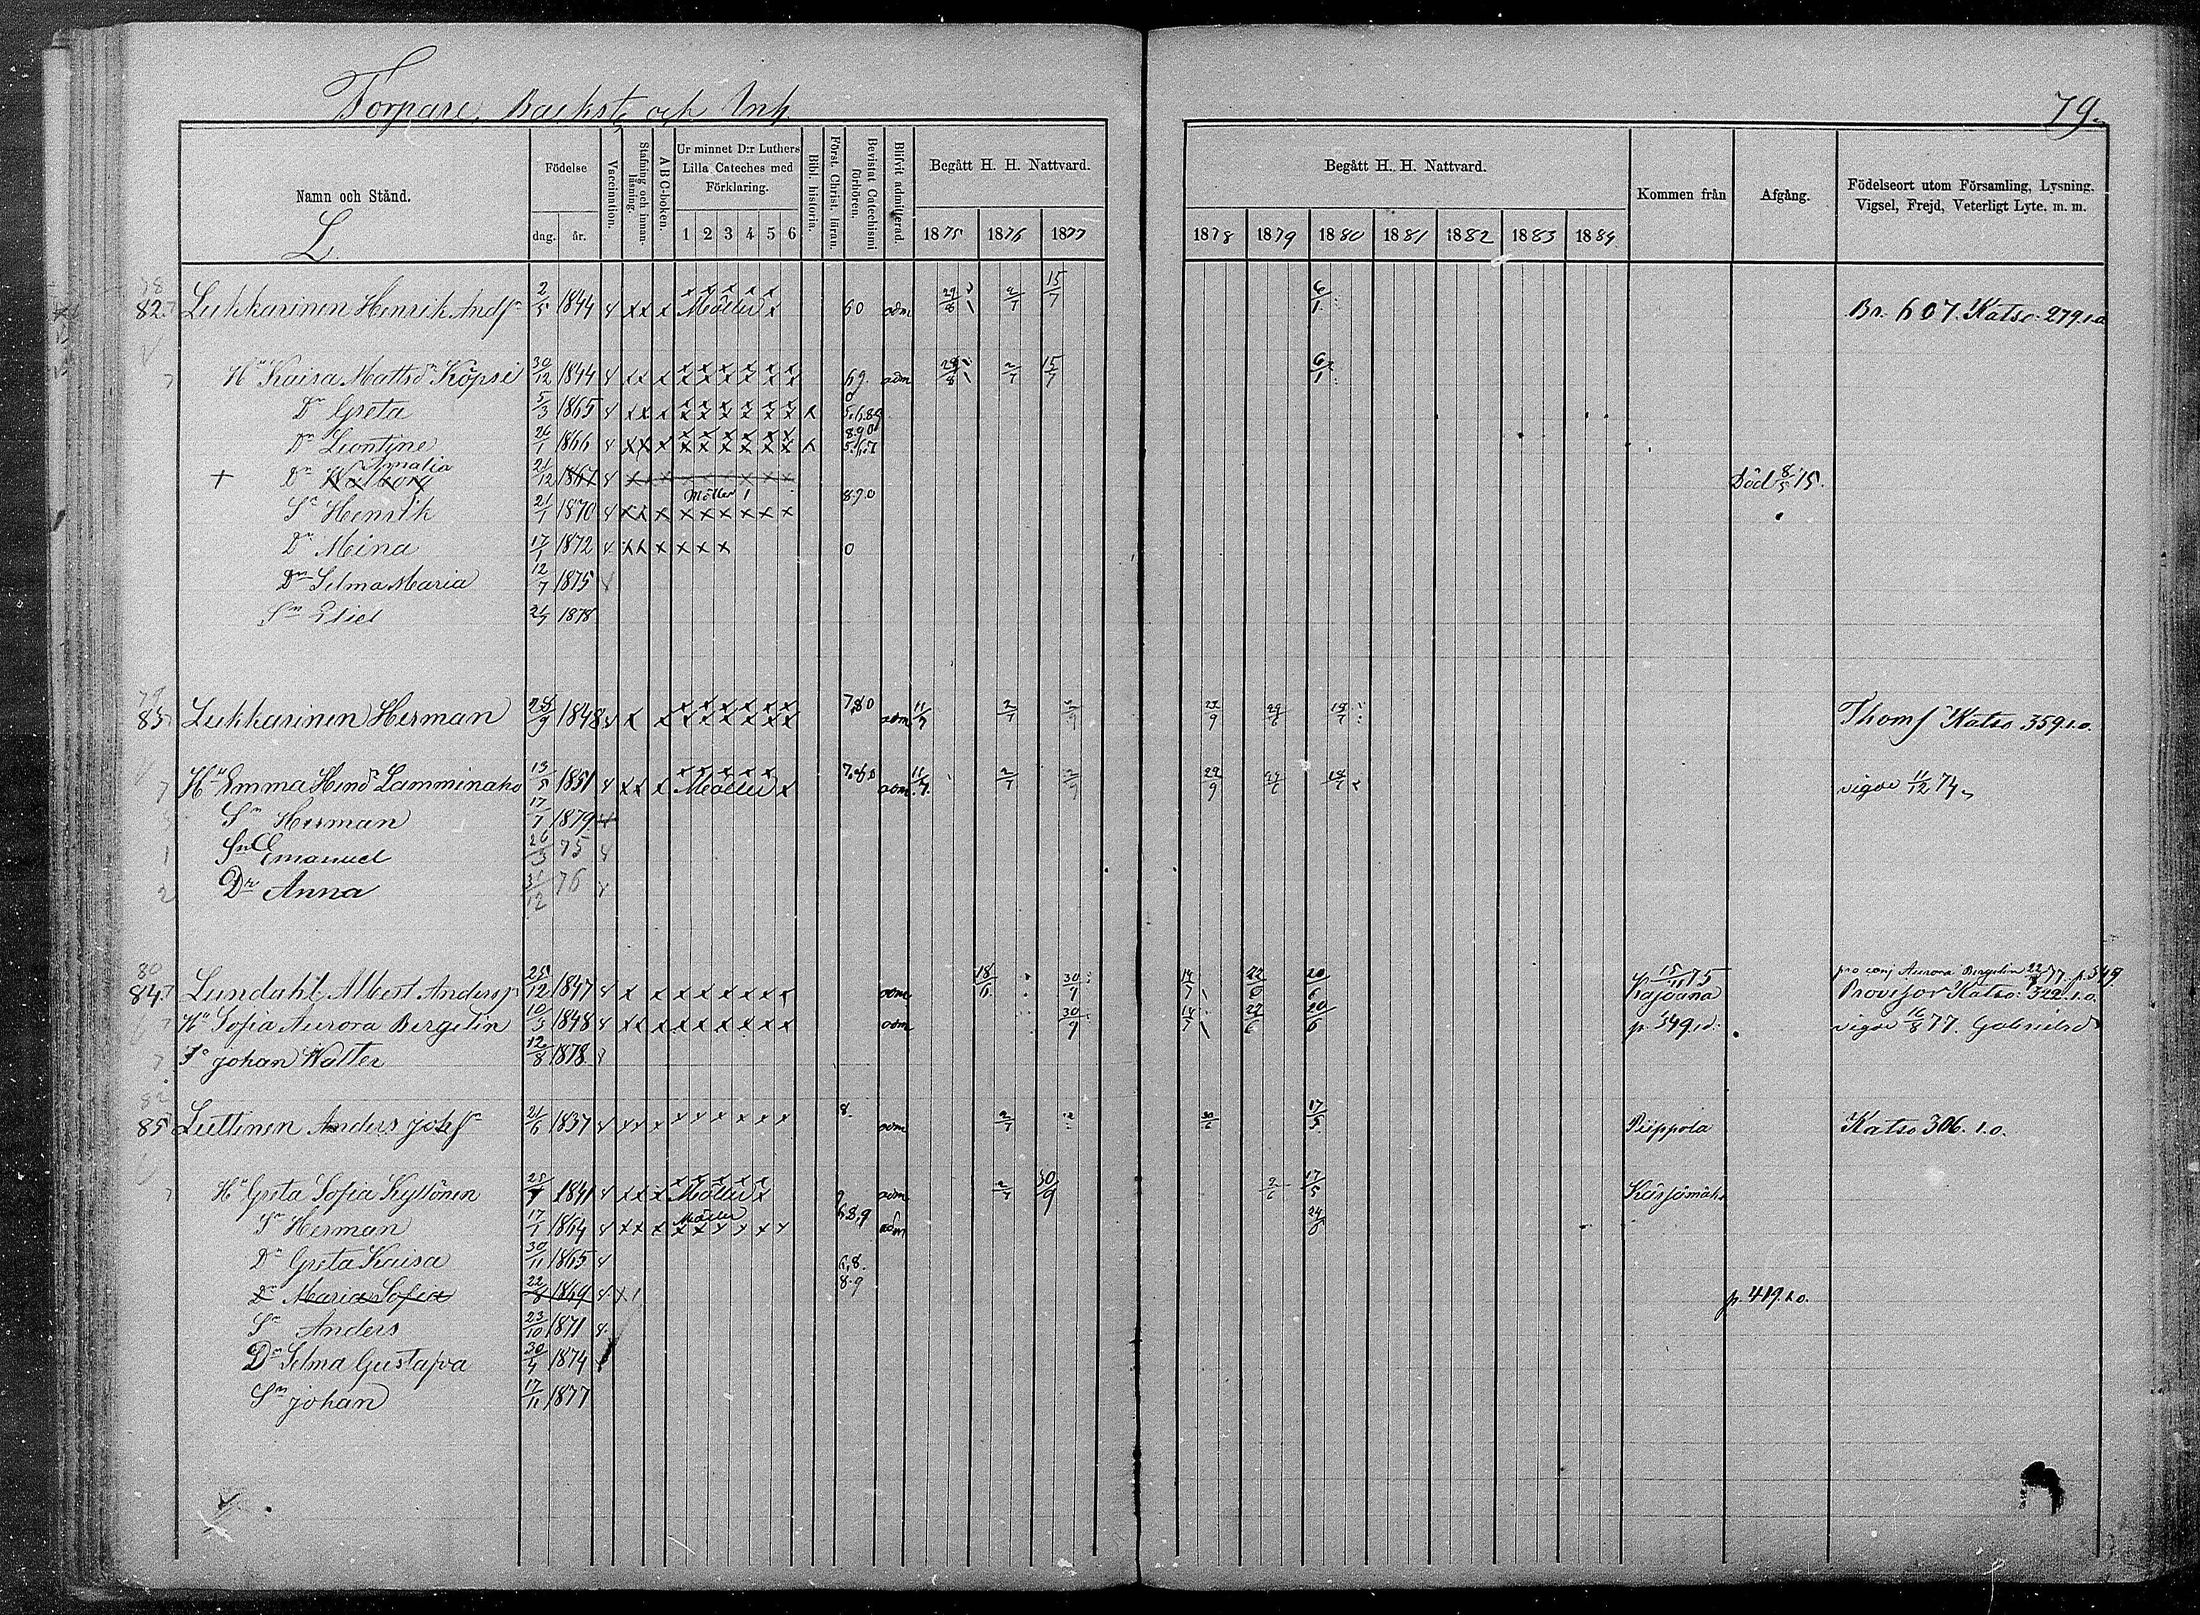 Torpare, Backst. och Inh.
79.
Namn och Stånd.
L.
Födelse
dag.
år.
Vaccination.
Stafning och innanläsning.
A B C-boken.
Ur minnet D:r Luthers Lilla Cateches med Förklaring.
1 2 3 4 5 6
Bibl. historia.
Först. Christ. läran.
Bevistat Catechismi förhören.
Blifvit admitterad.
Begått H. H. Nattvard.
1875 1876 1877
Begått H. H. Nattvard.
1878 1879 1880 1881 1882 1883 1884
Kommen från
Afgång.
Födelseort utom Församling, Lysning, Vigsel, Frejd, Veterligt Lyte. m. m.
82. Lukkarinen Henrik Andss 2/5 1844 Möller 60 adm 2/7 15/7 6/1 Br. 607. Katso 279.1.o
Hu Kaisa Mattsdr Köpsi 30/12 1844 69. adm 2/7 15/7 6/1
Dr Greta 5/3 1865
Dr Leontine 26/1 1866 5.6.7
+ Dr Walborg Amalia 21/12 1867 Död 8/5 75.
Sn Henrik 21/1 1870 Möller 890
Dr Meina 17/1 1872 0
Dr Selma Maria 12/7 1875
Sn Eliel 1878
83 Lukkarinen Herman 25/9 1848 780 adm 11/7 2/7 2/9 Thoms Katso 359.1.o.
Hu Emma Hind. Lamminaho 13/5 1851 Möller adm 11/7 2/7 2/9 29/9 vigde 11/12 74
Sn Herman 17/1 1879
Sn Emanuel 26/3 75
Dr Anna 31/12 76
84 Lundahl Albert Anderss 25/12 1847 adm 30/9 20/6 15/11 75 Kajaana pro conj Aurora Bergelin 77. p. 349 Provisor Katso: 322.1.o.
Hu Sofia Aurora Bergelin 10/3 1848 adm 30/9 20/6 p. 349.1.o. vigde 16/8 77. Gabrielsd
Sn Johan Walter 12/8 1878
85 Luttinen Anders Johss 21/6 1837 8. adm 2/7 30/6 17/5 Piippola Katso 306. 1.o.
Hu Greta Sofia Kyllönen 1841 Möller adm 2/7 30/9 17/5 Kärsämäki
Sn Herman 17/1 1864 Möller 6.8.9 adm
Dr Greta Kaisa 30/11 1865 6,8.
Dr Maria Sofia 22/8 1869 8.9 p. 419.1.o.
Sn Anders 23/10 1871
Dr Selma Gustafva 30/4 1874
Sn Johan 17/11 1877